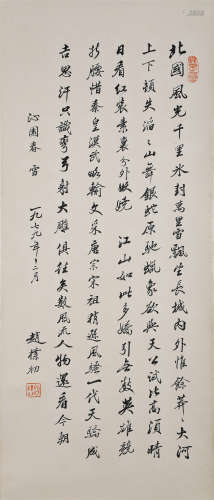 北國風光千里冰封萬里雪飄望長城內外惟餘莽〻大河
上下頓失滔〻山舞銀蛇原馳蠟象欲與天公試比高須晴
日看紅裝素裹分外妖嬈 江山如此多嬌引無數英雄競
折腰惜秦皇漢武略輸文采唐宗宋祖稍遜風騷一代天驕成
吉思汗只識彎弓射大雕俱往矣數風流人物還看今朝
沁園春 雪
一九七九年十二月
趙樸初